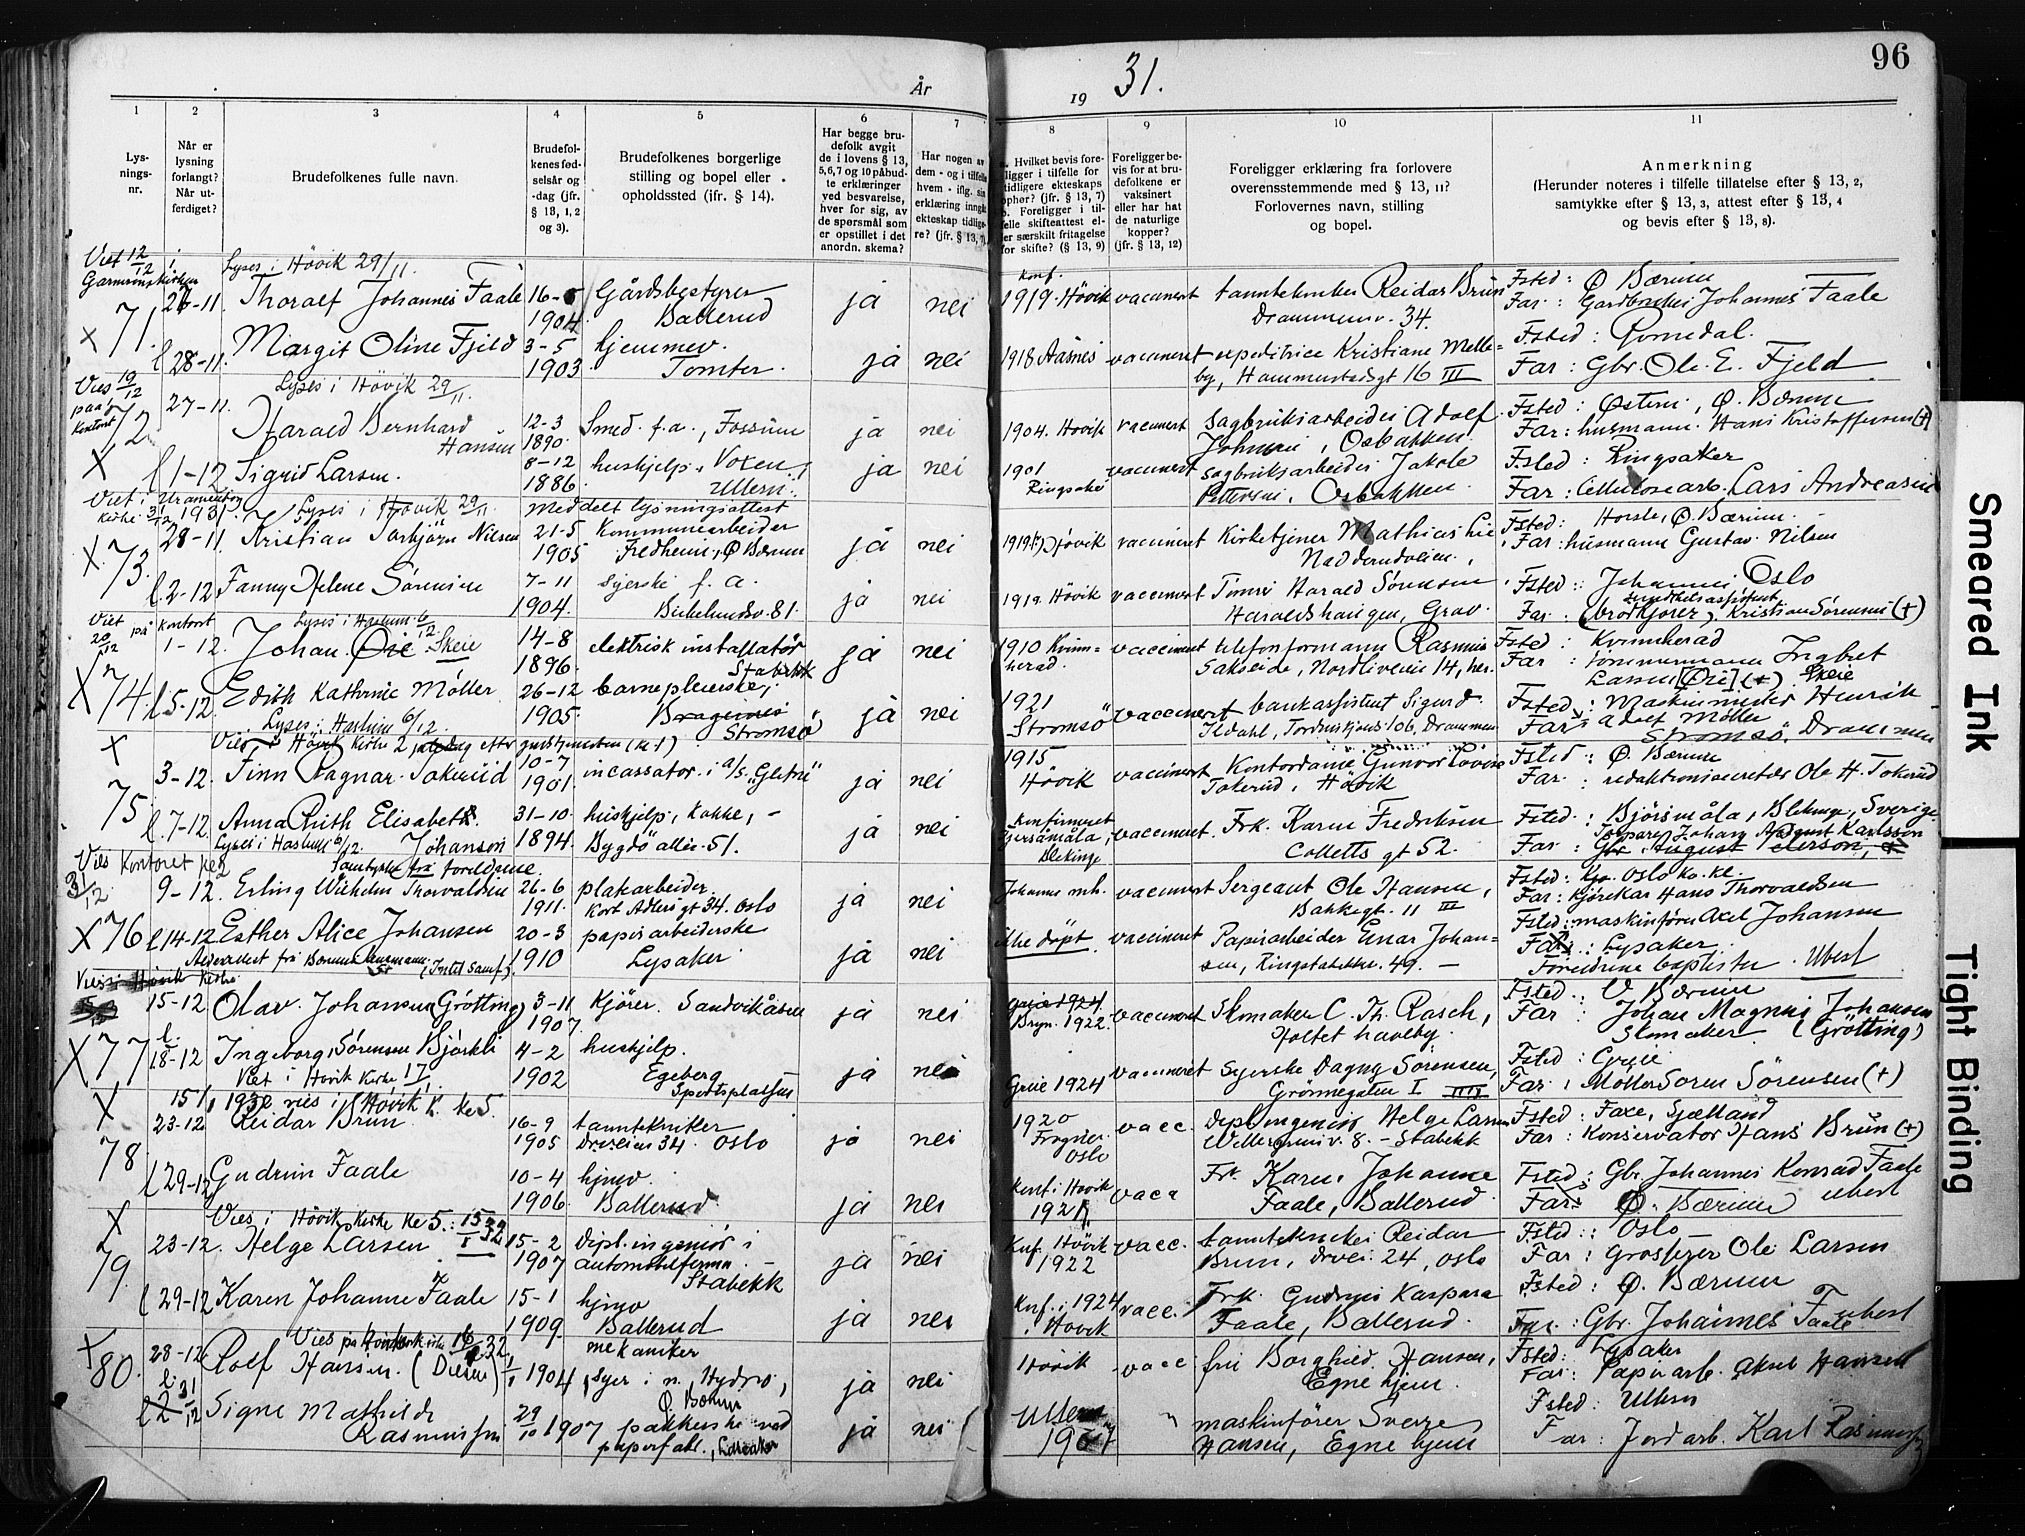 96
År 19 31.
1 2 3 4 5 6 7 8 9 10 11
Lys-
nings-
nr.
Når er
lysning
forlangt?
Når ut-
ferdiget?
Brudefolkenes fulle navn.
Brudefol-
kenes fød-
selsår og
-dag (jfr.
§ 13, 1, 2
og 3).
Brudefolkenes borgerlige
stilling og bopel eller
opholdssted (ifr. § 14).
Har begge bru-
defolk avgit
de i lovens § 13,
5,6,7 og 10 påbud-
te erklæringer
ved besvarelse,
hver for sig, av
de spørsmål som
er opstillet i det
anordn. skema?
Har nogen av
dem - og i tilfelle
hvem - iflg. sin
erklæring inngåt
ekteskap tidlige-
re? (jfr. § 13, 7)
Hvilket bevis fore-
ligger i tilfelle for
tidligere ekteskaps
ophør? (jfr. § 13, 7)
b. Foreligger i til-
felle skifteattest el-
ler særskilt fritagelse
for skifte? (§ 13, 9)
Foreligger be-
vis for at bru-
defolkene er
vaksinert
eller har hat
de naturlige
kopper?
(jfr. § 13, 12)
Foreligger erklæring fra forlovere
overensstemmende med § 13, 11?
Forlovernes navn, stilling
og bopel.
Anmerkning
(Herunder noteres i tilfelle tillatelse efter § 13, 2,
samtykke efter § 13, 3, attest efter § 13, 4
og bevis efter § 13, 8).
Viet 12/12 i
Lyses i Hövik 29/11.
71. 26-11 Thoralf Johannes Faale 16-5 Gårdsbestyrer ja nei Konf. 1919. Hövik vaccinert tanntekniker Reidar Brun Fsted: Ø Bærum
1904. Ballerud Drammensv. 34. Far: Gardbruker Johannes Faale
X l 28-11. Margit Oline Fjeld 3-5 hjemmev. ja nei 1918 Aasnes vaccineret expeditrice Kristiane Melle- Fsted: Romedal.
1903. Tomter. by, Hammerstadsgt 16 III Far: Gbr. Ole E. Fjeld
Vies 19/12 paa kontoret
Lyses i Hövik 29/11
72 27-11. Harald Bernhard 12-3 Smed f.a., Fossum ja nei 1904. Hövik vaccinert Sagbruksarbeider Adolf Fsted: Østern, Ø. Bærum
Hansen 1890. Johnsen, Osbakken. Far: husmann Hans Kristoffersen (+)
X l 1-12 Sigrid Larsen. 8-12 hushjelp, Voxen, ja nei 1901 vaccinert Sagbruksarbeider Jakob Fsted: Ringsaker
1886. Ullern. Ringsaker Pettersen, Osbakken Far: Cellulosearb. Lars Andreassen
Viet i Uranienborg kirke 31/12 1931.
Lyses i Hövik 29/11 meddelt lysningsattest
X. 73. 28-11. Kristian Torbjörn Nilsen 21-5 Kommunearbeider ja nei 1919. Hövik vaccineret Kirketjener Mathias Lie Fsted: Horsle, Ø. Bærum.
1905 Fredheim, Ø Bærum Nadderudveien. Far: husmann Gustav Nilsen
l. 2-12. Fanny Helene Sörensen 7-11 syerske f.a. ja nei 1919. Hövik vaccinert Tömrer Harald Sörensen Fsted: Johannes Oslo
1904. Birkelundsv. 81. Haraldshaugen, Grav. Far: (brödkjører) Kristian Sörensen (+)
Viet 20/12 på kontoret
Lyses i Haslum 6/12
X 74. 1-12. Johan Øie Skeie 14-8 elektrisk installatör ja nei 1910 Kvinn- vaccineret telefonformann Rasmus Fsted: Kvinnherad
1896. Stabekk herad. Sakseide, Nordliveien 14, her. Far: tömmermann Ingbret
Larsen [Øie] (+) Skeie
l 5-12. Edith Kathrine Möller 26-12 barnepleierske, ja nei 1921 vaccinert bankassistent Sigurd Fsted: Maskinmester Henrik
Lyses i Haslum 6/12 1905. Bragernes Strömsö Strömsö Ildahl, Drammen Far: Adolf Möller
Strömsö, Drammen
X Vies i Hövik Kirke 2 juledag efter gudstjenesten (kl 1)
75. 3-12. Finn Ragnar Tokerud 10-7 incassator i a/s "Glitne" ja nei 1915 vaccinert Kontordame Gunvor Lovise Fsted: Ø. Bærum
1901. Hövik Tokerud, Hövik Far: redaktionssecretær Ole H. Tokerud
l. 7-12. Anna Ruth Elisabeth 31-10 hushjelp, kokke, - ja nei Konfirmeret vaccineret. Frk. Karen Fredriksen Fsted: Björsmåla, Blekinge, Sverige
Lyses i Haslum 6/12. Johanson 1894. Bygdö allé 51. Blekinge Colletts gt 52. Torpare Johan August Karlsson
Far: Gbr. August Peterson,
Vies Kontoret kl 2 31/12
Samtykke fra foreldrene.
X 76 9-12. Erling Wilhelm Thorvaldsen 26-6 platearbeider. ja nei Johannes mh. vaccinert Sergeant Ole Hansen, Fsted: Oslo ko. kl.
1911. Kort Adlers gt 34. Oslo Bakkegt. 11 III Far: Kjörekar Hans Thorvaldsen
l 14-12 Esther Alice Johansen 20-3 papirarbeiderske ja nei ikke döpt. vaccineret Papirarbeider Einar Johan- Fsted: maskinförer Axel Johansen
1910 Lysaker sen, Ringstabekkv. 49. - Far: Lysaker
Foreldrene baptister. Ubest
Vies i Hövik Kirke
X 77 15-12 Olav Johansen (Grötting) 3-11 Kjörer. Sandvikåsen ja nei Grue 1924 vaccinert Skomaker C. Th. Rasch, Fsted: V. Bærum
1907. Bryn. 1922. Holtet haveby. Far: Johan Magnus Johansen
Skomaker (Grötting)
l. 18-12 Ingeborg Sörensen Bjørkli 4-2 hushjelp. ja nei Grue 1924 vaccineret Syerske Dagny Sörensen, Fsted: Grue
Viet i Hövik Kirke 1902 Egeberg Sportsplatsen Grönnegaten I IIII Far: Möller Soren Sörensen (+)
X 15/1 1932 vies i Hövik K. kl 5.
78 23-12 Reidar Brun 16-9 tanntekniker ja nei 1920 vacc. Dipl.ingeniör Helge Larsen Fsted: Faxe, Sjælland
1905 Drveien 34. Oslo Frogner Oslo v. 8. - Stabekk Far: Konservator Hans Brun (+)
l 29-12 Gudrun Faale 10-4 hjmv. ja nei Konf. i Hövik 1921. vacc Frk Karen Johanne Fsted: Gbr Johannes Konrad Faale
1906 Ballerud. Faale, Ballerud Far: Ø. Bærum ubest
X Vies i Hövik Kirke kl 5. 15/1 32
79. 23-12. Helge Larsen 15-2 Dipl.ingeniör i ja nei Knf. Hövik vacc. tanntekniker Reidar Fsted: Oslo
1907 automobilfirma - Stabekk 1922 Brun, Drvei 24, Oslo Far: Grosserer Ole Larsen
l 29-12 Karen Johanne Faale 15-1 hjmv ja nei Knf. i 1924 vacc. Frk. Gudrun Kaspara Fsted: Ø. Bærum
1909. Ballerud i Hövik Faale, Ballerud. Far: Gbr. Johannes Faale ubest
X 80. 28-12 Rolf Hansen (Diesen) 1/1 1904 mekaniker ja nei Hövik vacc fru Borghild Hansen, Fsted: Lysaker
syer i n. Hydro, Ø. Bærum Egne hjem. Far: Papirarb. Aksel Hansen
l 31/12 Signe Mathilde 29/10 1907 pakkerske ved ja nei Ullern " maskinförer Sverre Fsted: Ullern
Rasmussen papirfabr., Lysaker Hansen, Egne hjem Far: Jordarb. Karl Rasmussen
Smeared Ink
Tight Binding